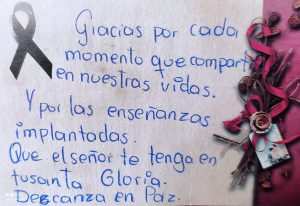 Gracias por cada
momento que comparti
en nuestras vidas.
Y por las enseñanzas
implantadas.
Que el señor te tenga en
tusanta Gloria.
Descanza en Paz.